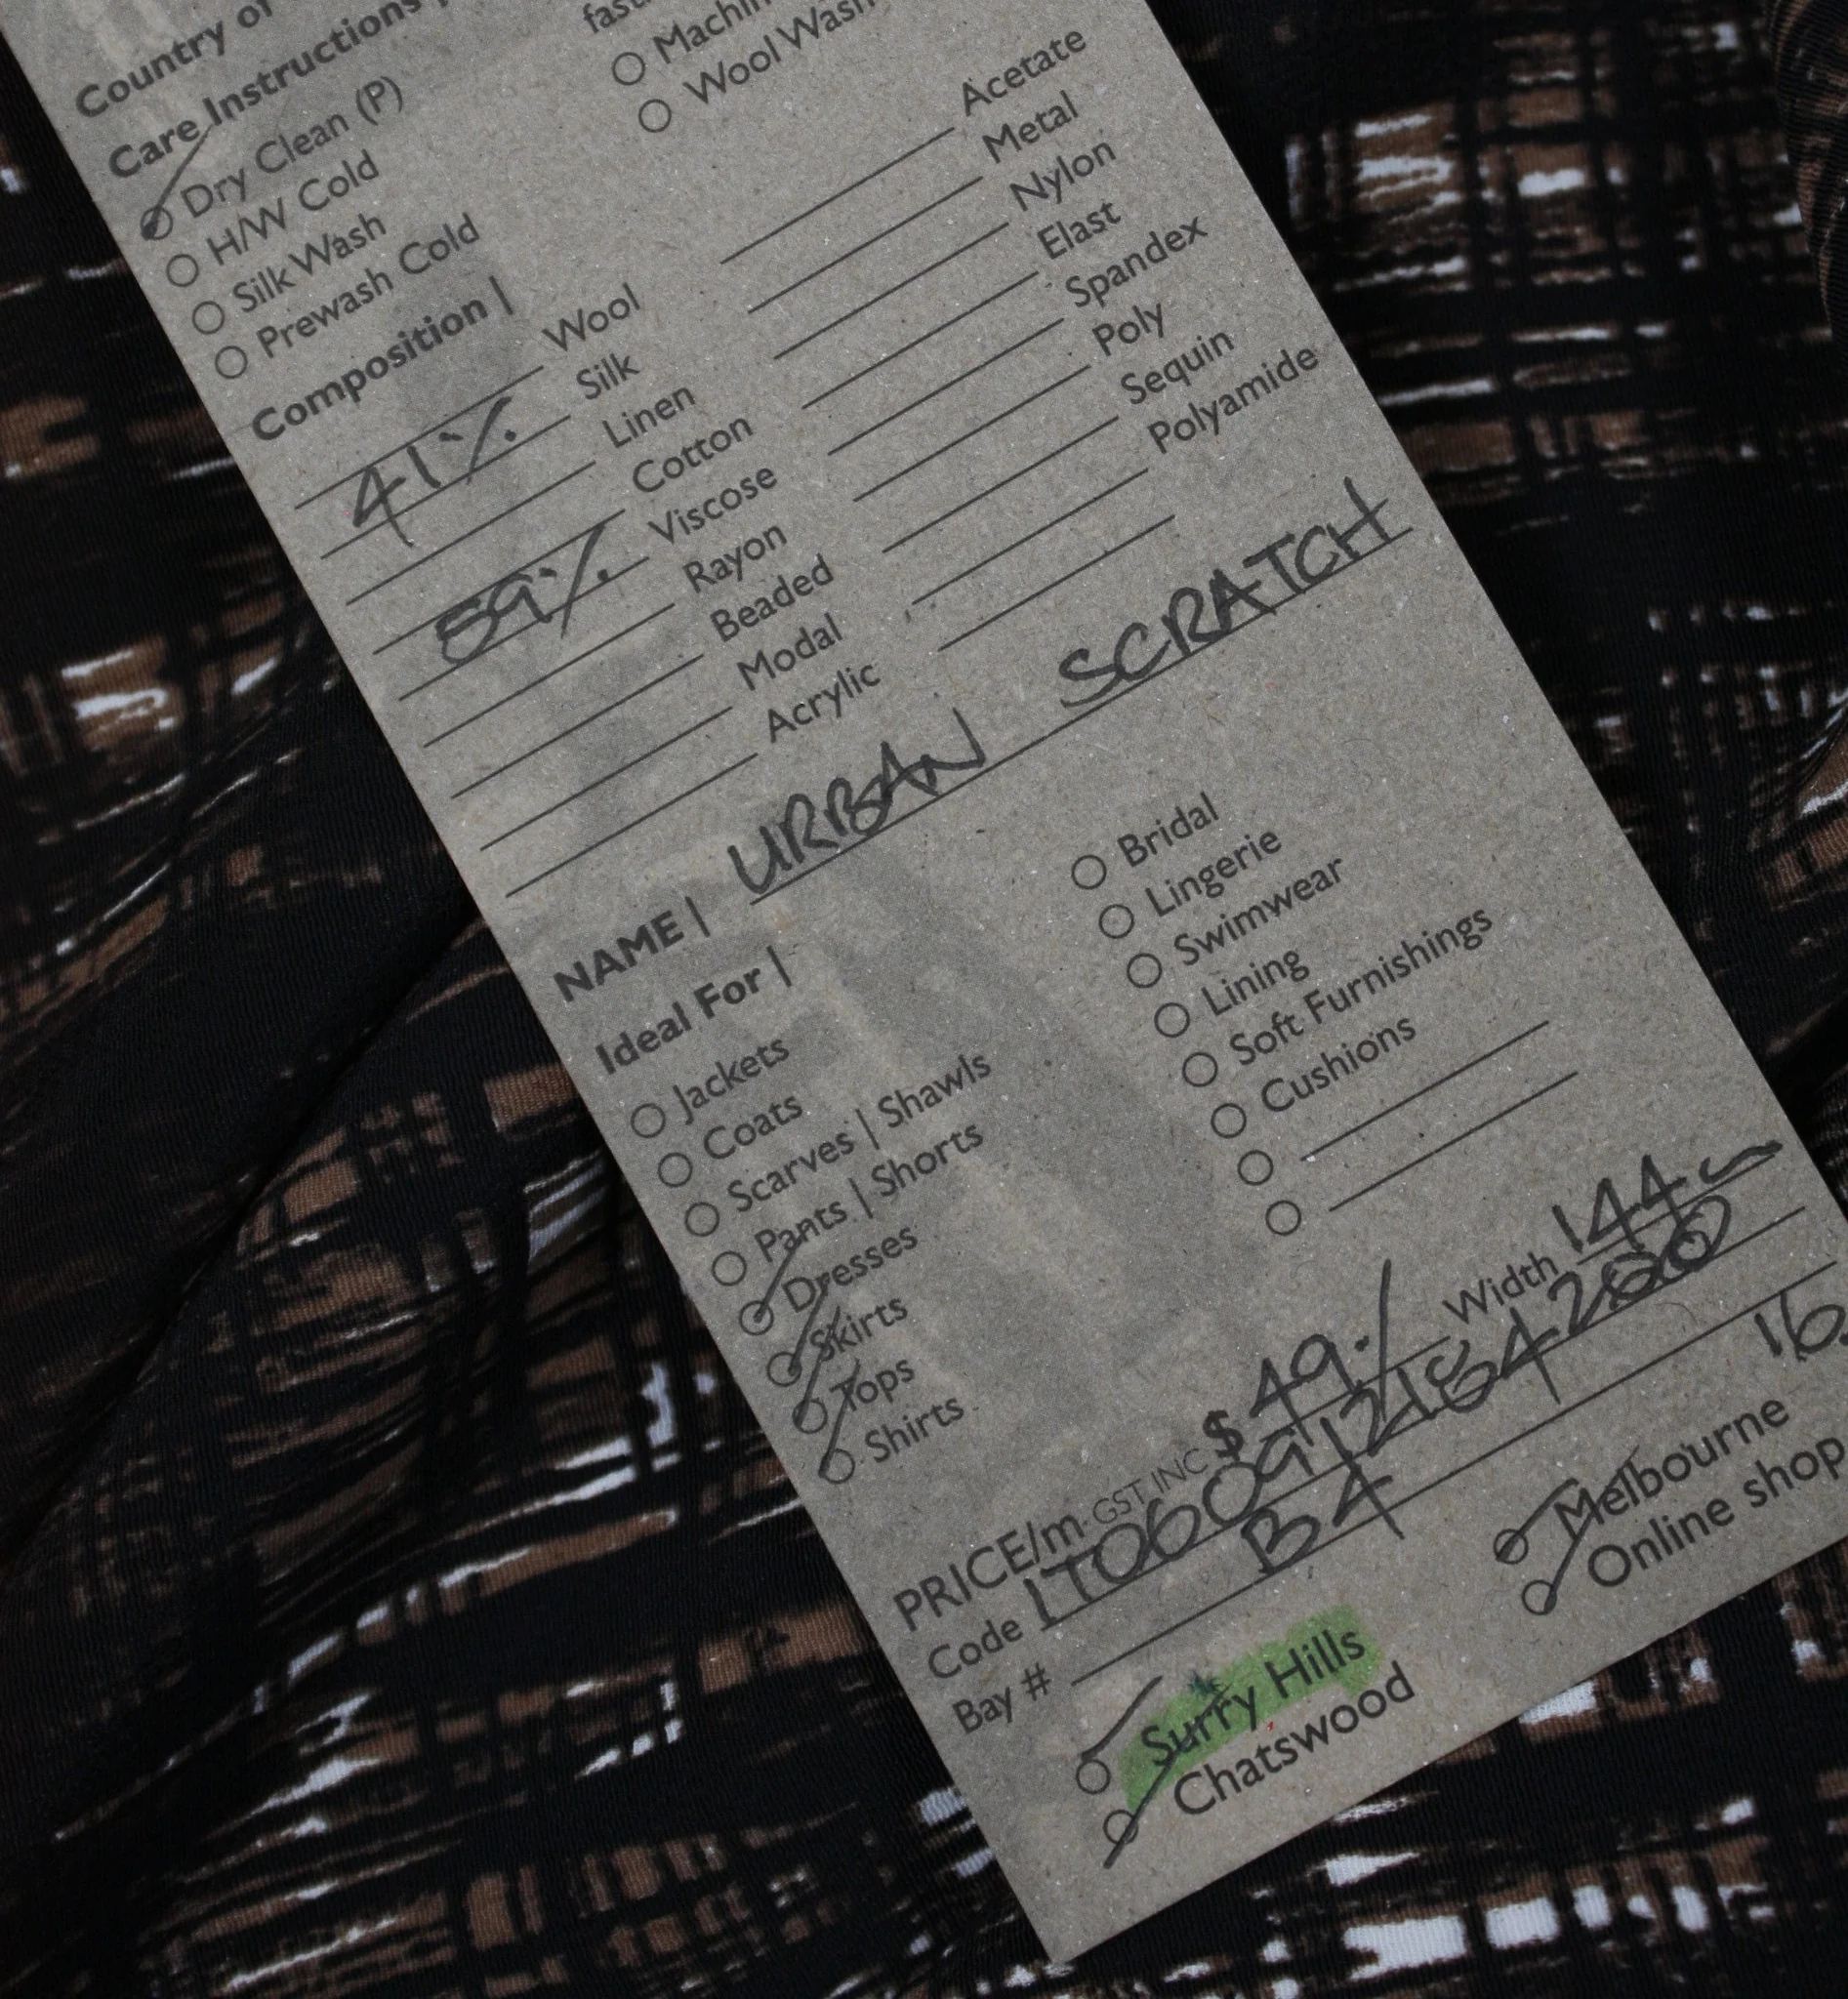 Country of
Care Instructions |
Dry Clean (P)
H/W Cold
Silk Wash
Prewash Cold
Wool Wash
Composition |
Wool
41% Silk
Linen
Cotton
59% Viscose
Rayon
Beaded
Modal
Acrylic
Acetate
Metal
Nylon
Elast
Spandex
Poly
Sequin
Polyamide
NAME | URBAN SCRATCH
Ideal For |
Jackets
Coats
Scarves | Shawls
Pants | Shorts
Dresses
Skirts
Tops
Shirts
Bridal
Lingerie
Swimwear
Lining
Soft Furnishings
Cushions
PRICE/m GST INC $ 49. Width 144
Code
Bay # B4 16
Surry Hills
Chatswood
Melbourne
Online shop